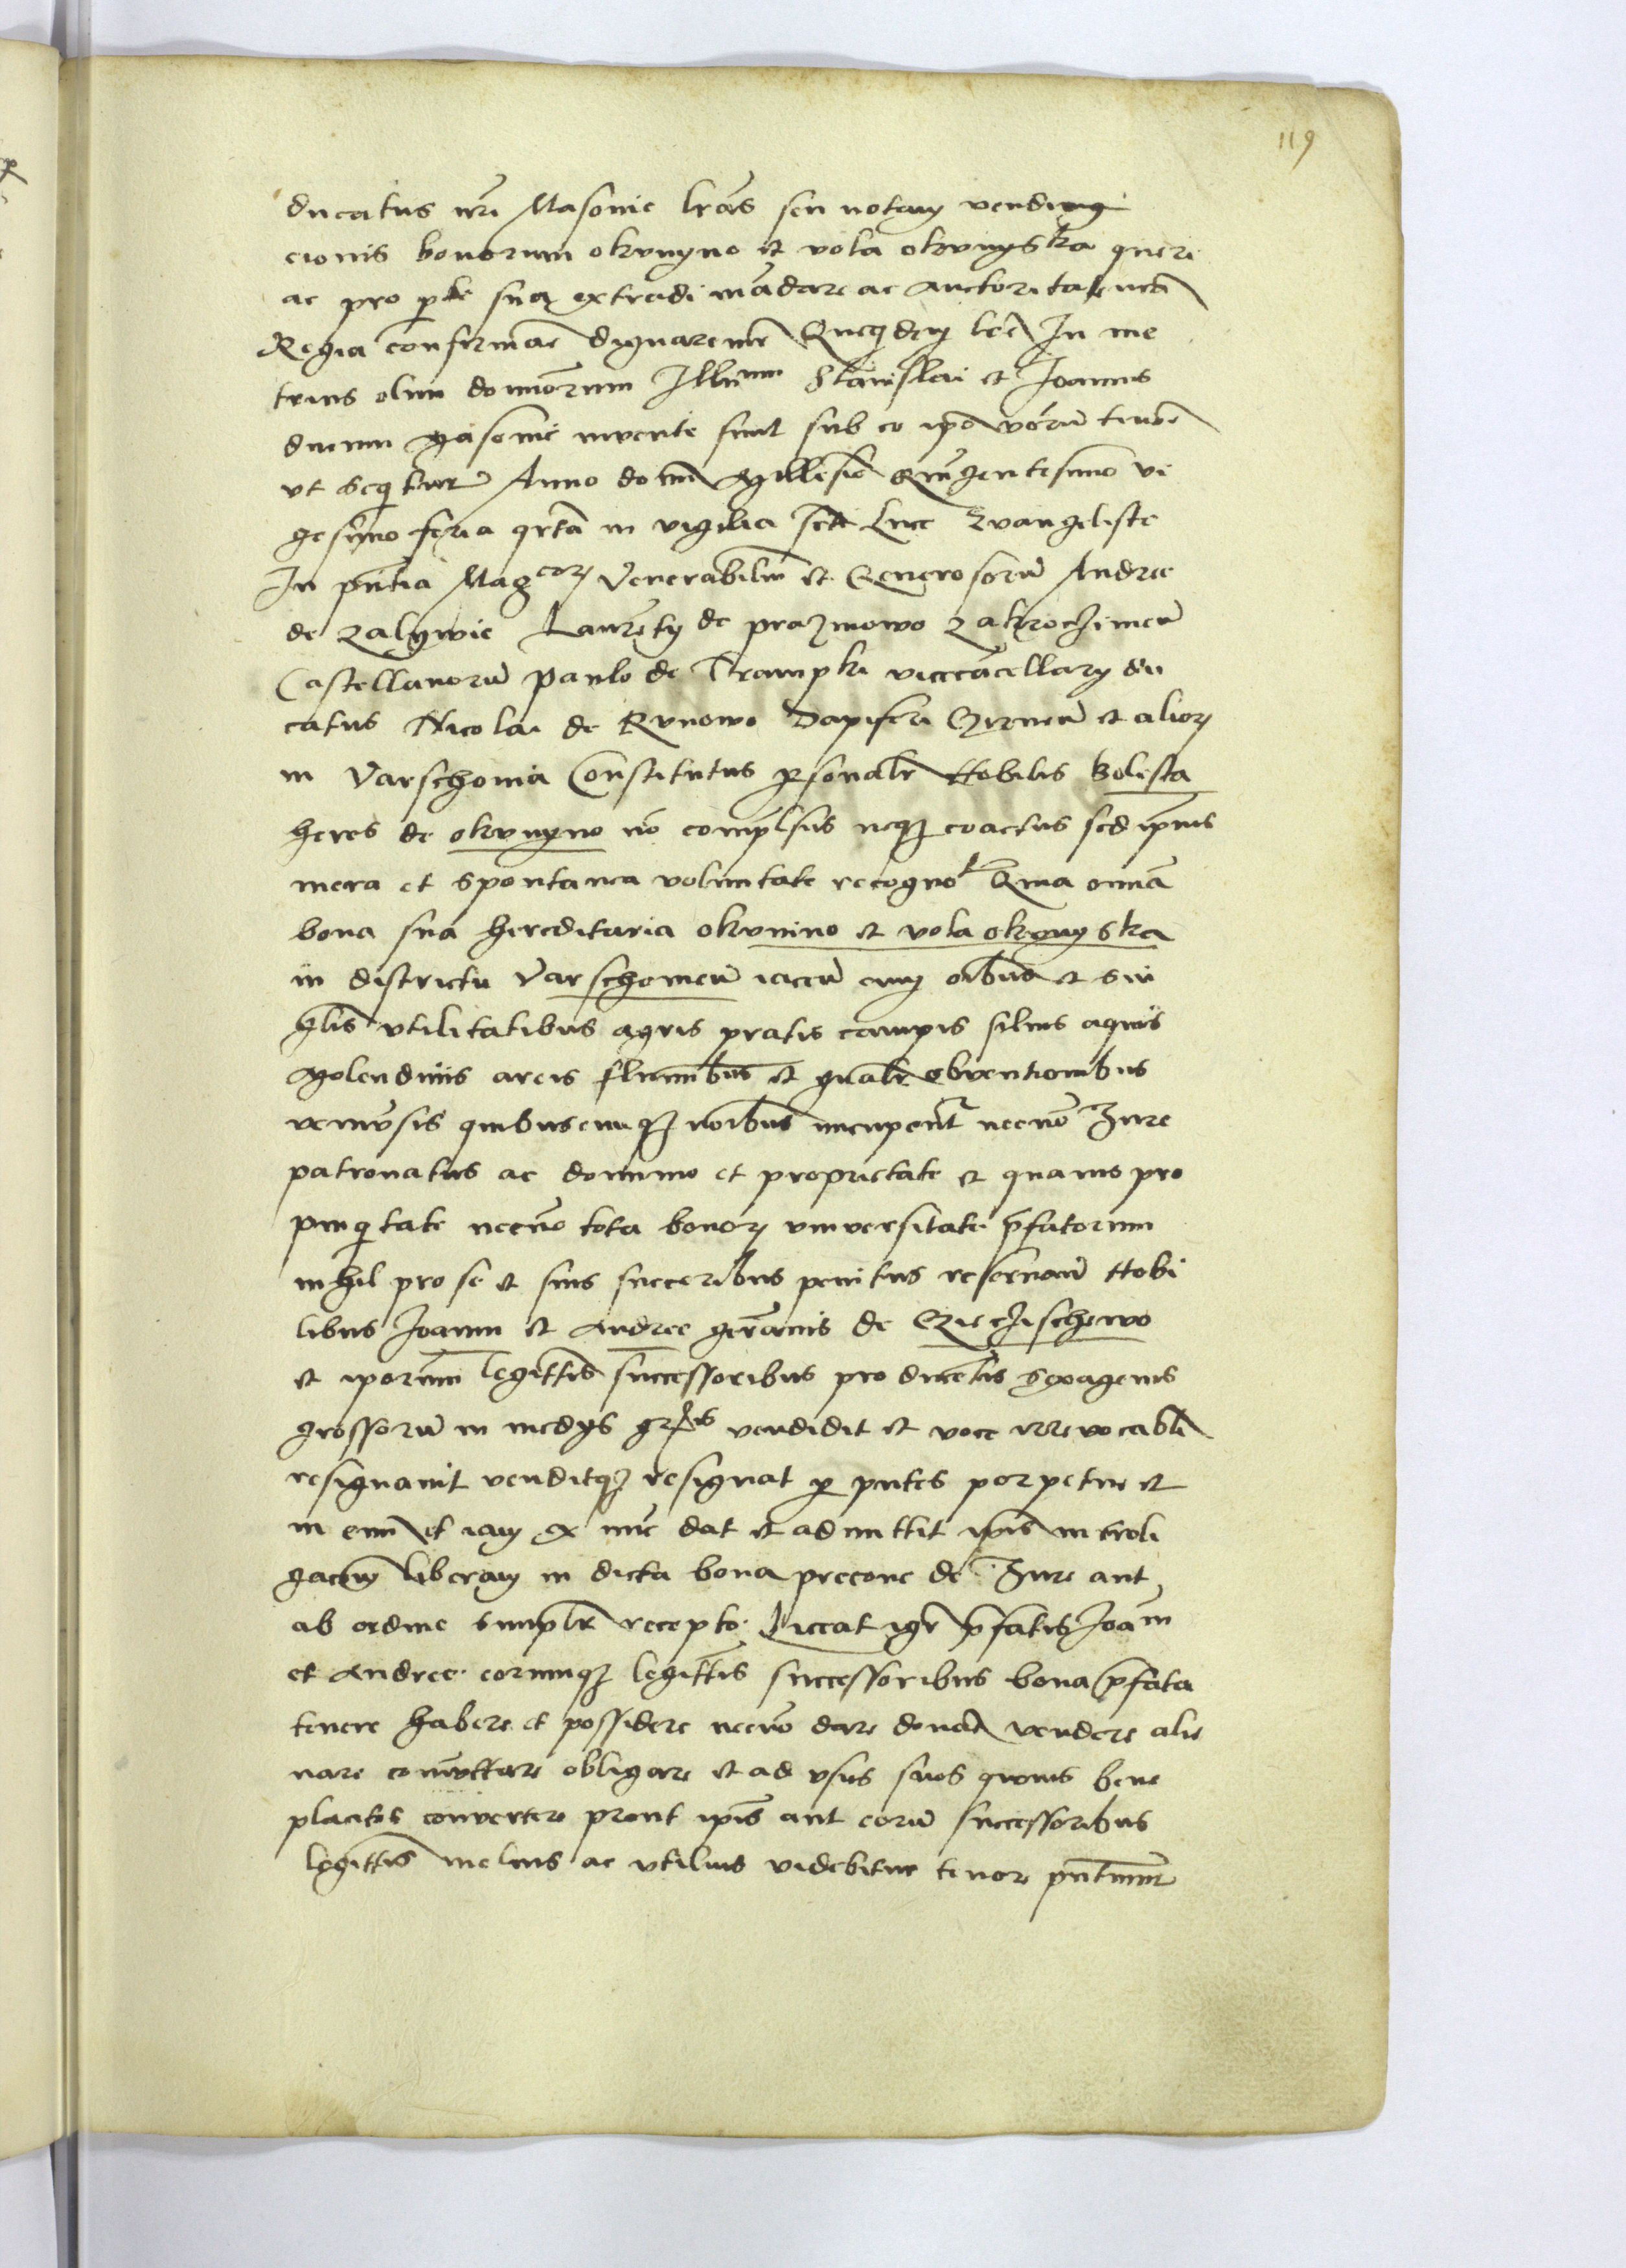 119
ducatus nri Masovie lras seu notam vendi
cionis bonorum okvnyno et vola okvnyska queri
ac pro pte sua extradi mãdare ac auctoritate nrã
Regia confirmare dignaremur Quequidem lre In me
tricis olim dominorum Illmum Stanislai et Joannis
ducum Masovie invente sunt sub eo ipo verõr tenore
vt sequitur Anno domini Millesimo quingentesimo vi
gesimo feria qrta in vigilia scti Luce Evangeliste
In pntia Magcorum Venerabilium et Generosorũ Andree
de Zalywie Laurẽty de prazmowo Zakroczimeñ
Castellanorũ paulo de Trampki vicecãcellary du
catus Nicolai de Rvnowo Dapiferi Czirneñ et aliorum
in Varschovia Constitutus psonalr Nobilis Bolesta
heres de okvnyno nõ compulsus neqz coactus sed ipius
mera et spontanea voluntate recognovit Quia omnia
bona sua hereditaria okvnino et vola okvnyska
in districtu Varschovieñ iaceñ cum oibus et sin
glis vtilitatibus agris pratis campis silvis aquis
Molendinis areis fluminibus et gnalr obventionibus
vniversis quibuscunqz noibus nuncupentr necnõ Jure
patronatus ac dominio et proprietate et quavis pro
pinqitate necnõ tota bonorum vniversitate pfatorum
nihil pro se et suis succeribus penitus reservañ Nobi
libus Joanni et Andree germanis de Gzieczischewo
et iporum legittis successoribus pro ducẽtis sexagenis
grossorũ in medys grossis vendidit et voce irrevocabili
resignavit venditqz resignat p pntes perpetue et
in evũ et iam ex nũc dat et admittit ipis introli
gacõem liberam in dicta bona precone de Jure aut
ab ordine simplr recepto Liceat igr pfatis Joãni
et Andree eorumqz legittis successoribus bona pfata
tenere habere et possidere necnõ dare donare vendere alie
nare comuttare obligare et ad vsus suos quovis bene
placitos convertere prout ipis aut eorũ successoribus
legittis melius ac vtilius videbitur tenore pntium